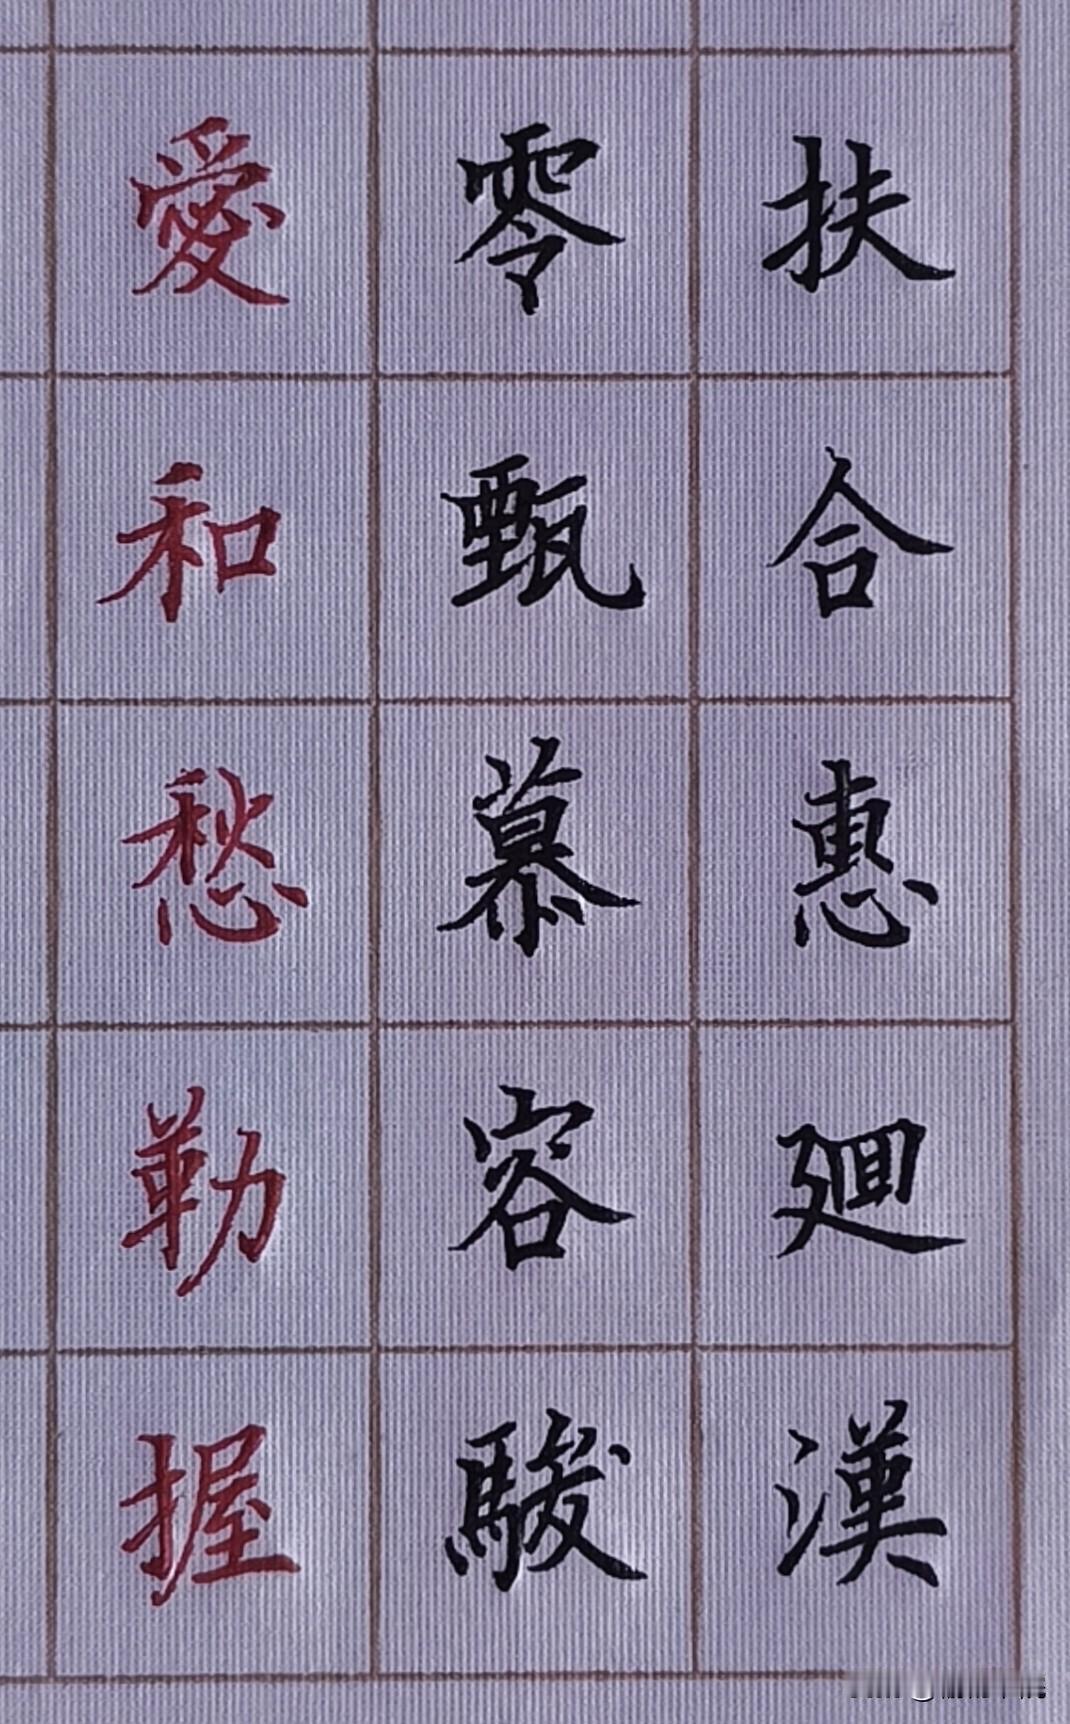 扶合惠廻漢
零甄慕容駿
愛和愁勒握